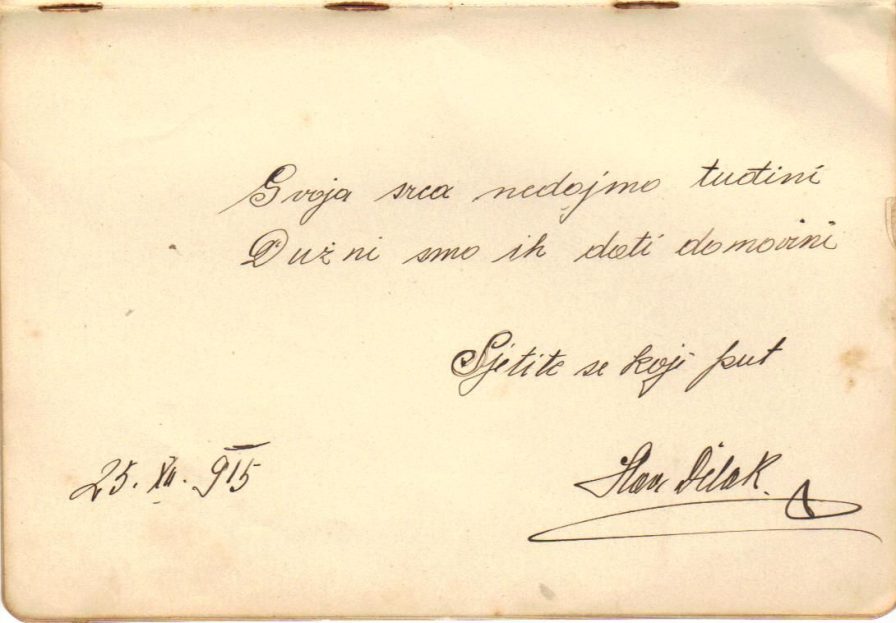 Svoja srca nedajmo tuđini
Dužni smo ih dati domovini
Sjetite se koji put
25. XII. 915
Slav Dilak